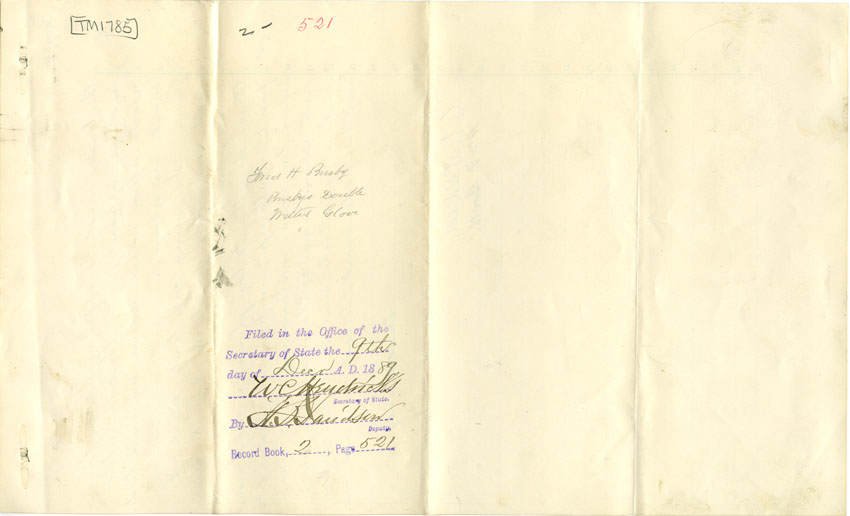 TM1785
2 - 521
H Busby
Busbys Double
Glove
Filed in the Office of the
Secretary of State the 9th
day of Decr A. D. 1889
W C Hendricks
Secretary of State.
By Davidson
Deputy.
Record Book, 2, Page 521